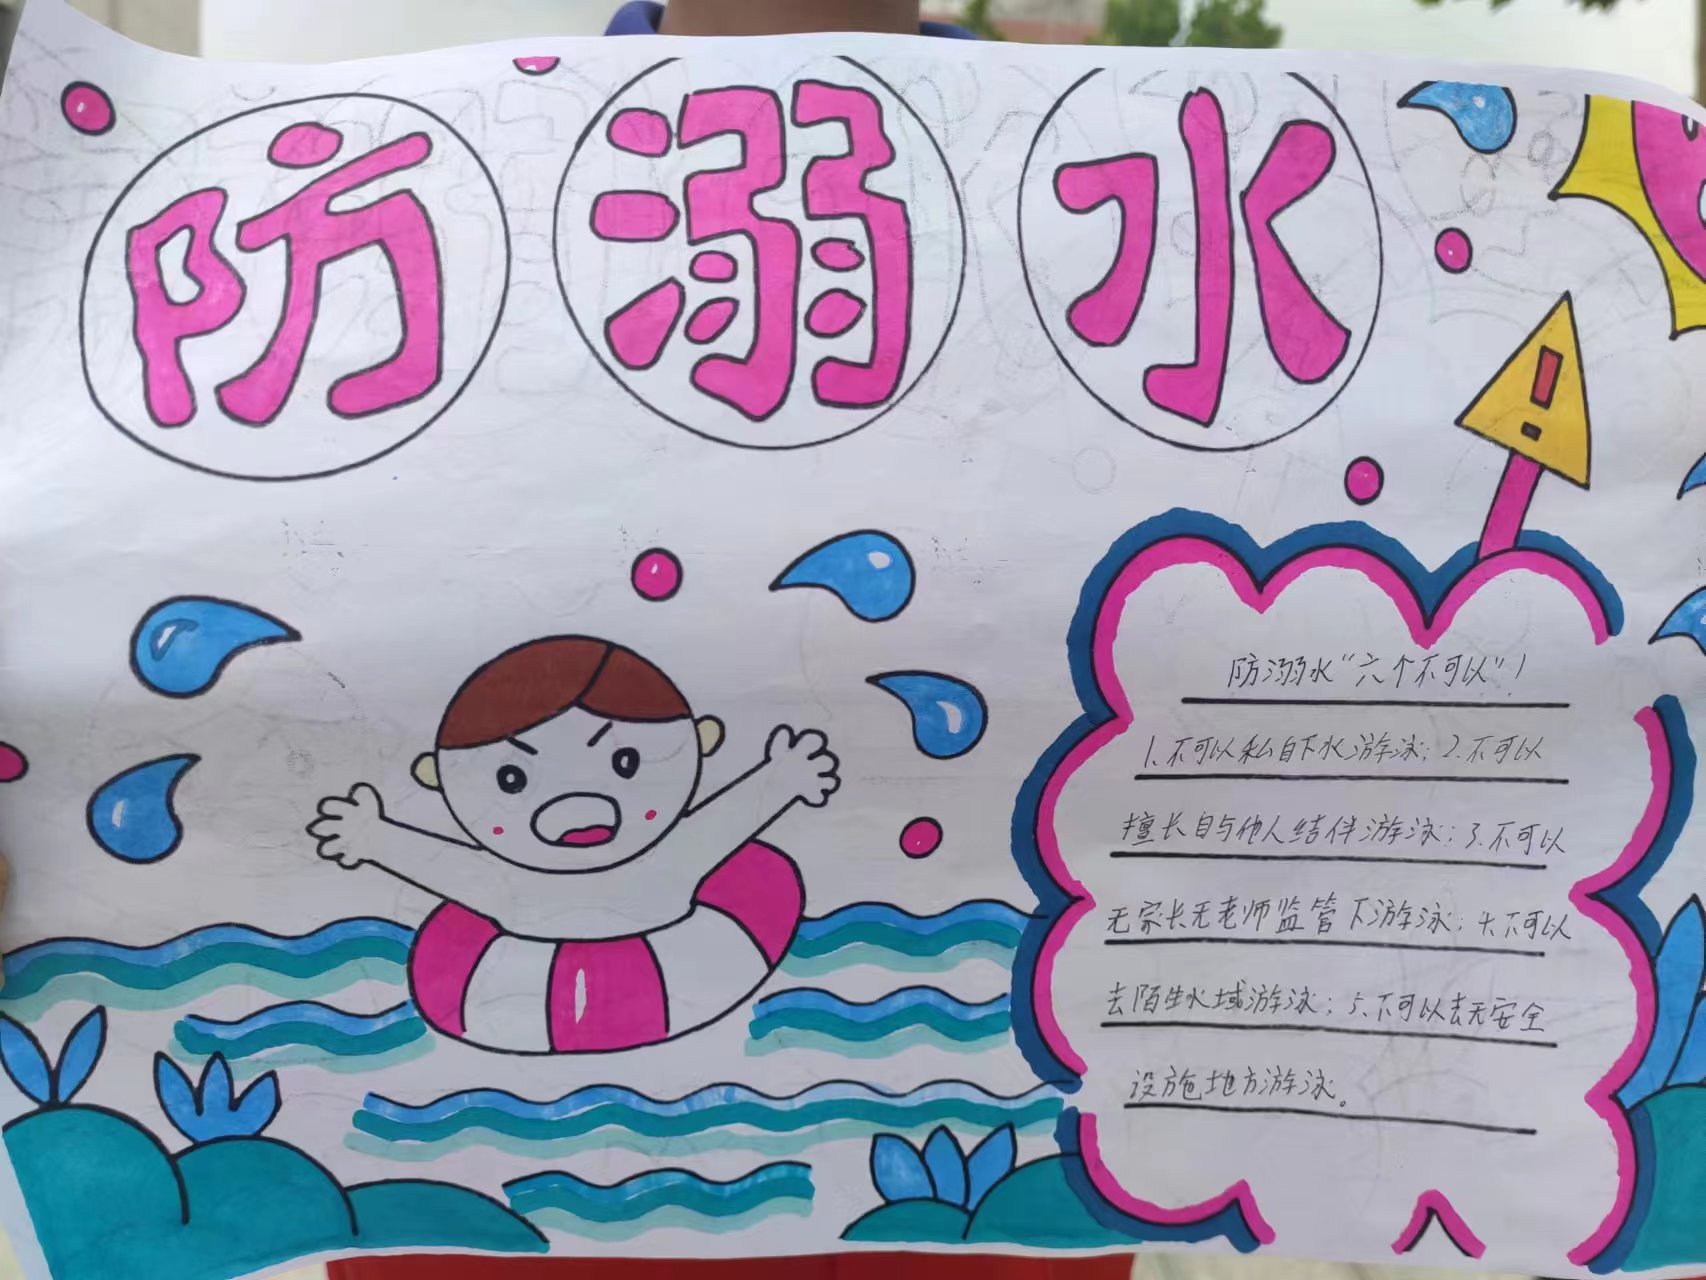 防溺水
!
防溺水“六个不可以”!
1.不可以私自下水游泳;2.不可以
擅长自与他人结伴游泳;3.不可以
无家长无老师监管下游泳;4.不可以
去陌生水域游泳;5.不可以去无安全
设施地方游泳。